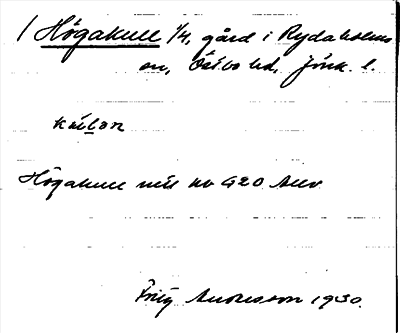 / Högakull 1/4, gård i Rydaholms
sn, Östbo hd, Jönk. l.
Högakull nr 420
Fritz Andersson 1930.